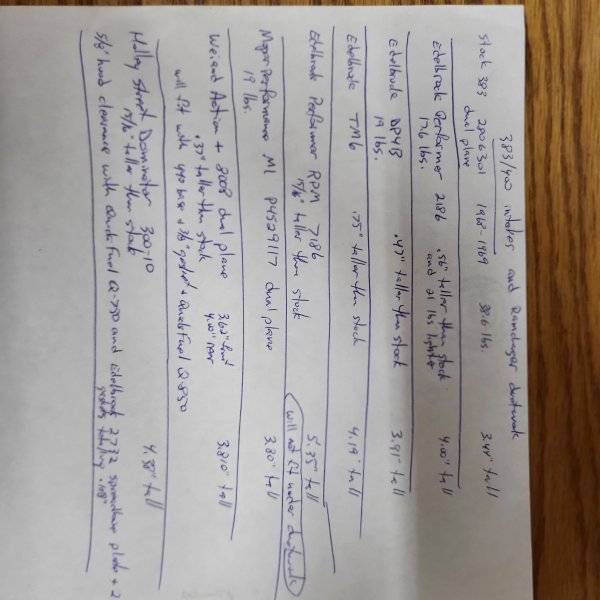 383/400 intakes and Ramcharger ductwork
Stock 383 2806301 1968-1969 38.6 lbs. 3.44" tall
dual plane
Edelbrock Performer 2186 .56" taller than stock 4.00" tall
17.6 lbs. and 21 lbs lighter
Edelbrock DP4B .47" taller than stock 3.91" tall
19 lbs.
Edelbrock TM6 .75" taller than stock 4.19" tall
Edelbrock Performer RPM 7186 5.35" tall
15/16" taller than stock will not fit under ductwork
Mopar Performance M1 P4529117 dual plane 3.80" tall
19 lbs.
Weiand Action + 8008 dual plane 3.62" front 3.810" tall
.37" taller than stock 4.00" rear
will fit with 440 base + 3/8" gasket + QuickFuel Q-850
Holley Street Dominator 300-10 4.38" tall
15/16" taller than stock
5/8" hood clearance with QuickFuel Q-750 and Edelbrock 2732 spreadbore plate + 2
gaskets totalling .108"